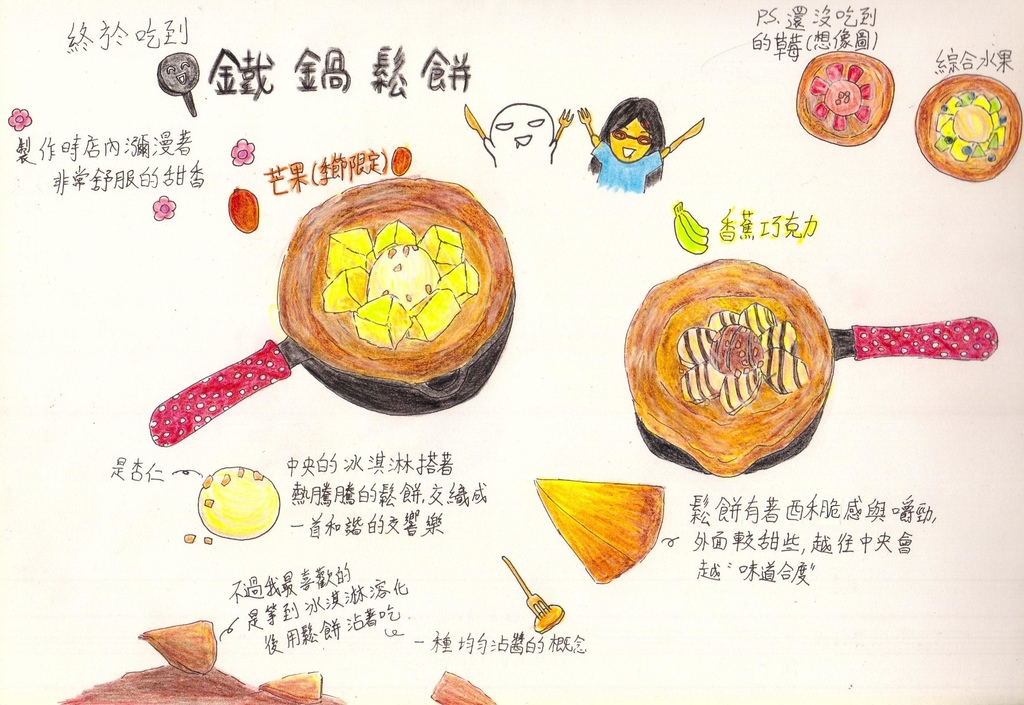 終於吃到
鐵鍋鬆餅
PS.還沒吃到
的草莓(想像圖)
綜合水果
製作時店內瀰漫著
非常舒服的甜香
芒果(季節限定)
香蕉巧克力
是杏仁
中央的冰淇淋搭著
熱騰騰的鬆餅,交織成
一首和諧的交響樂
鬆餅有著酥脆感與嚼勁,
外面較甜些,越往中央會
越"味道合度"
不過我最喜歡的
是等到冰淇淋溶化
後用鬆餅沾著吃
一種均勻沾醬的概念